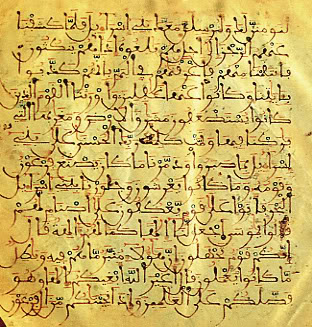 لنومنن لك ولنرسلن معك بني إسرائيل فلما كشفنا
عنهم الرجز إلى أجل هم بلغوه إذا هم ينكثون
فانتقمنا منهم فأغرقنهم في اليم بأنهم كذبوا
بآيتنا وكانوا عنها غفلين وأورثنا القوم الذين
كانوا يستضعفون مشرق الأرض ومغربها التي
بركنا فيها وتمت كلمت ربك الحسنى على بني
إسرائيل بما صبروا ودمرنا ما كان يصنع فرعون
وقومه وما كانوا يعرشون وجوزنا ببني إسرائيل
البحر فأتوا على قوم يعكفون على أصنام لهم
قالوا يموسى اجعل لنا إلها كما لهم آلهة قال
إنكم قوم تجهلون إن هؤلاء متبر ما هم فيه وبطل
ما كانوا يعملون قال أغير الله أبغيكم إلها وهو
فضلكم على العلمين وإذ أنجينكم من آل فرعون